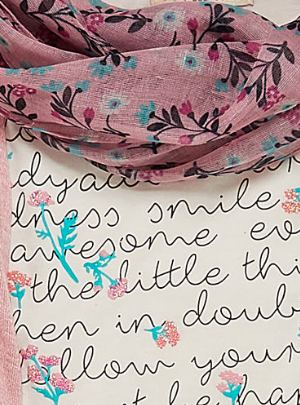 dya
dness smile
awesome ev
the little thi
hen in doub
llow your